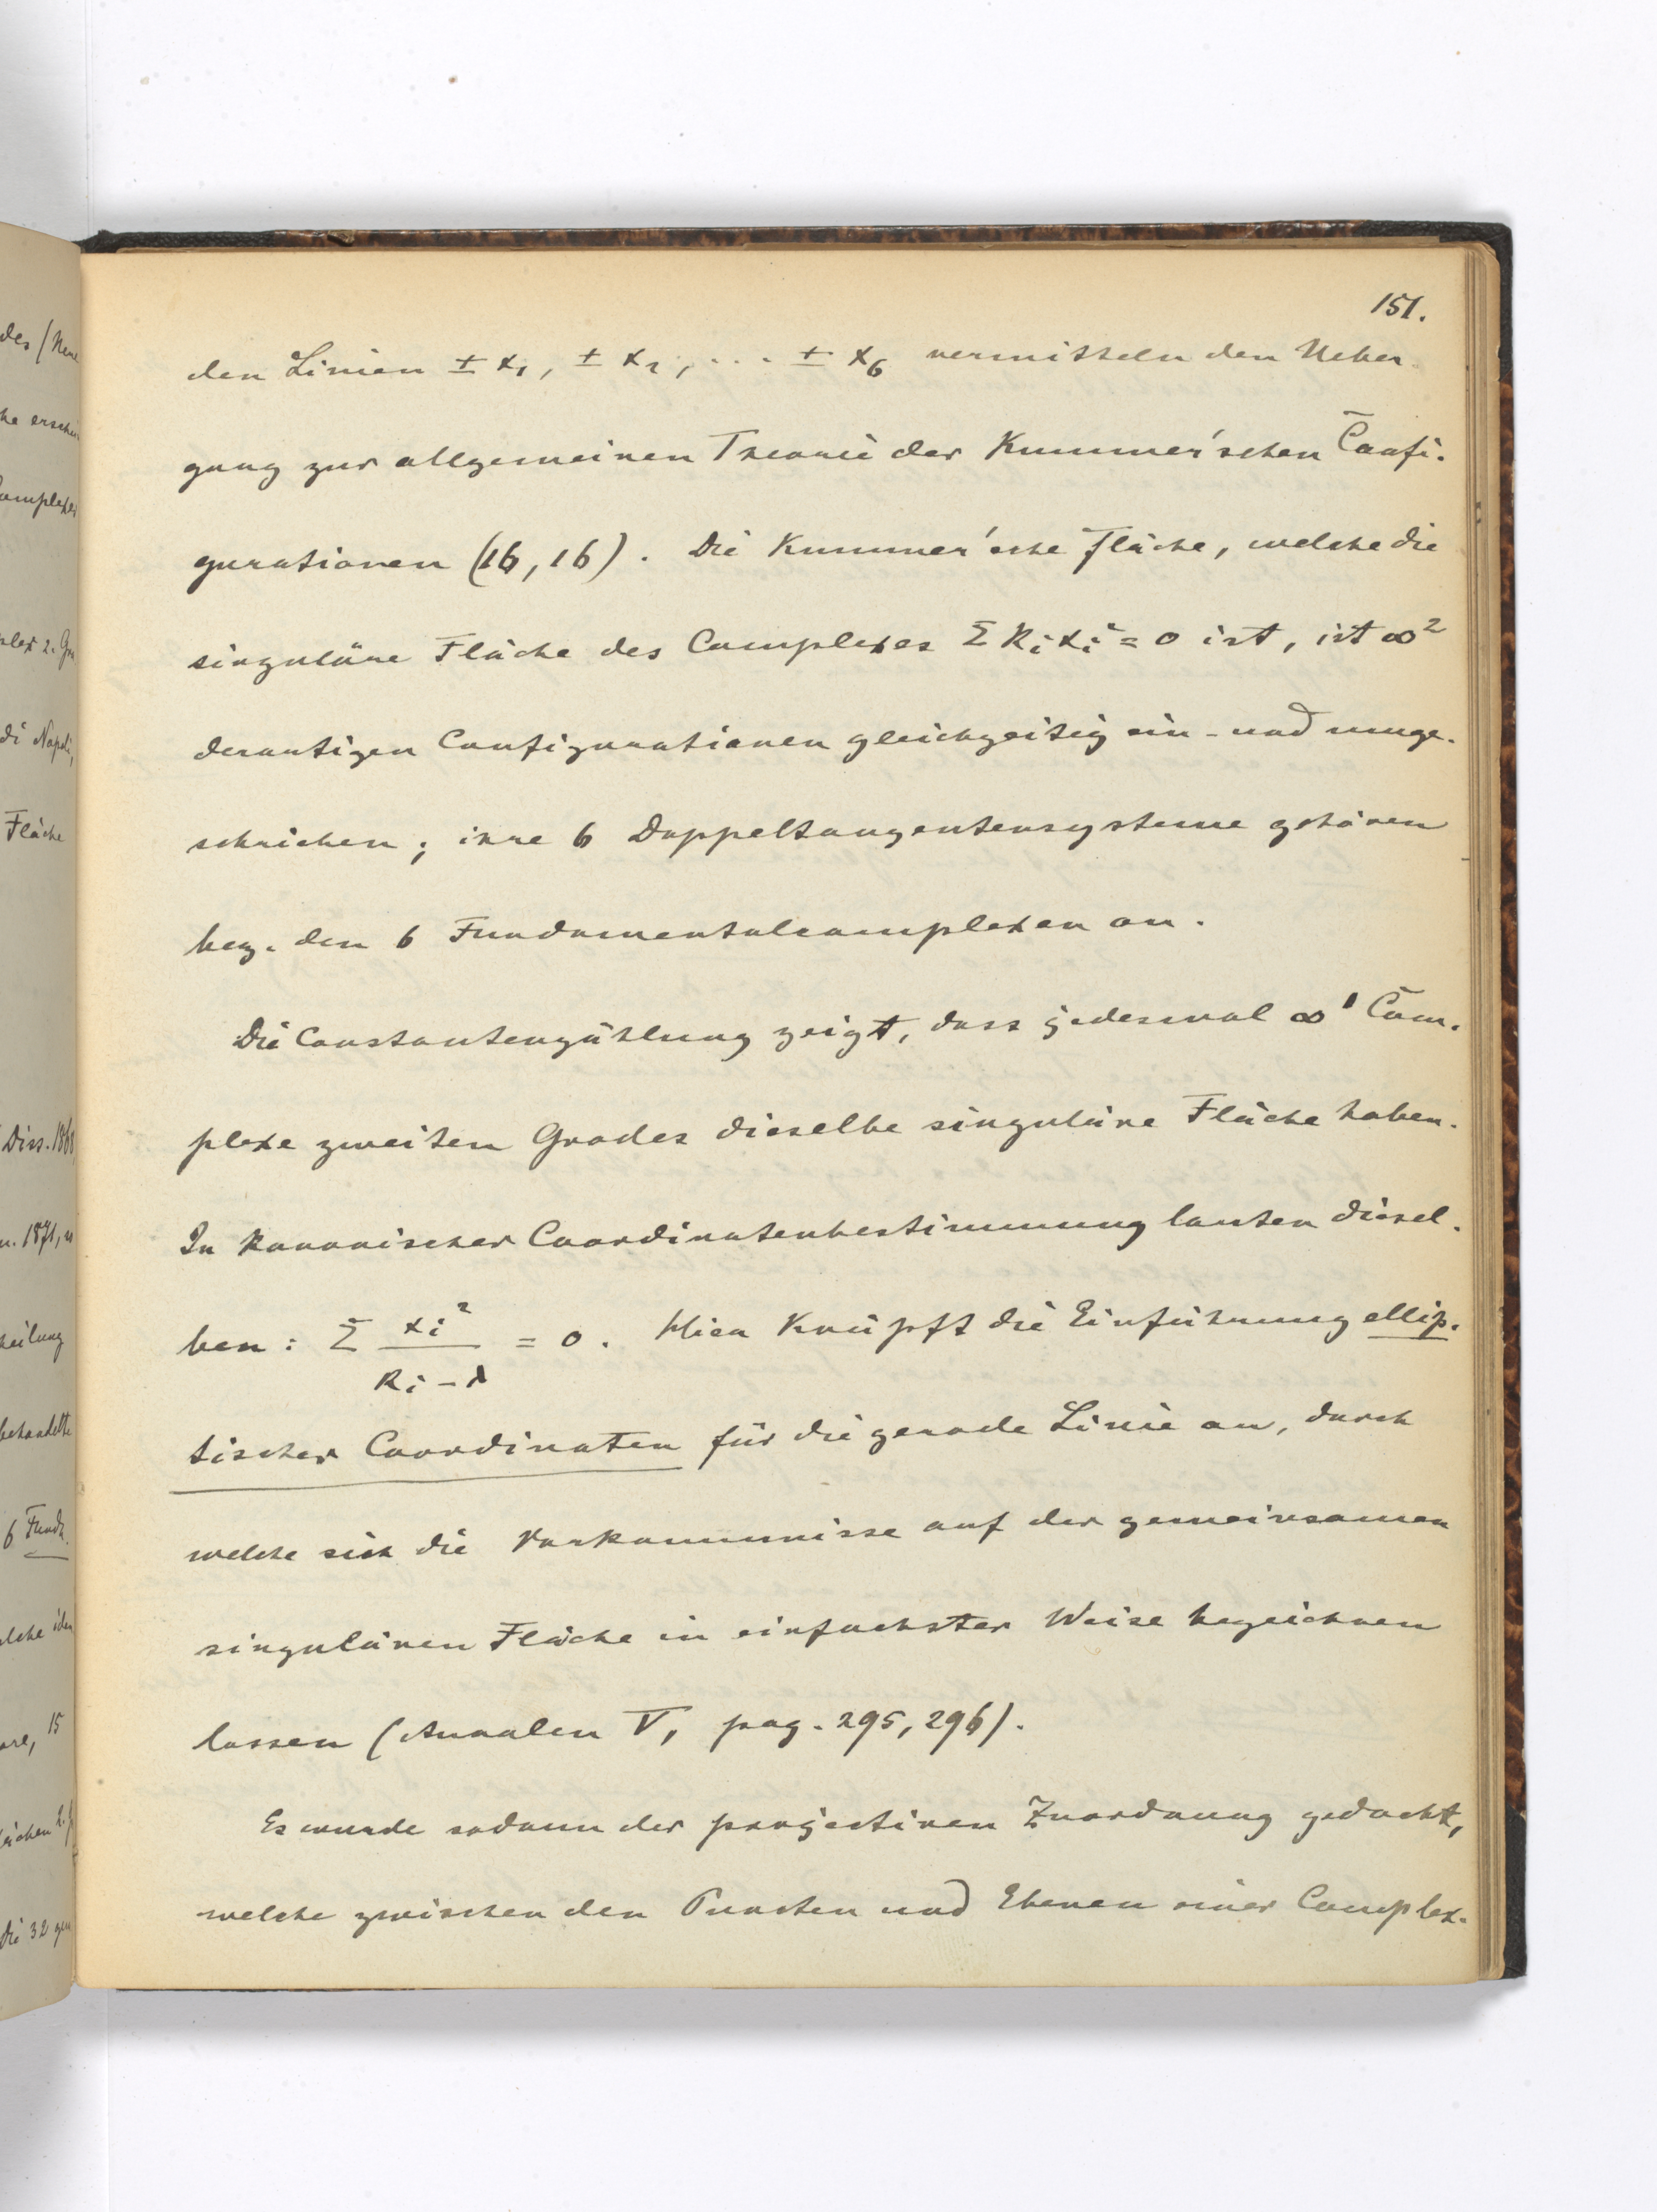 151.
den Linien ± x₁, ± x₂, ... ± x₆ vermitteln den Ueber-
gang zur allgemeinen Theorie der Kummer'schen Confi-
gurationen (16, 16). Die Kummer'sche Fläche, welche die
singuläre Fläche des Complexes Σ kᵢ xᵢ² = 0 ist, ist ∞²
derartigen Configurationen gleichzeitig ein- und umge-
schrieben; ihre 6 Doppeltangentensysteme gehören
bez. den 6 Fundamentalcomplexen an.
Die Constantenzählung zeigt, dass jedesmal ∞¹ Com-
plexe zweiten Grades dieselbe singuläre Fläche haben.
In kanonischer Coordinatenbestimmung lauten diesel-
ben: Σ xᵢ² / (kᵢ - λ) = 0. Hier knüpft die Einführung ellip-
tischer Coordinaten für die gerade Linie an, durch
welche sich die Vorkommnisse auf der gemeinsamen
singulären Fläche in einfachster Weise bezeichnen
lassen (Annalen V, pag. 295, 296).
Es wurde sodann der projectiven Zuordnung gedacht,
welche zwischen den Puncten und Ebenen einer Complex-
des (Neue
he erschei
Complexes
plex 2. Gra
di Napoli,
Fläche
Diss. 1868
n. 1871, u
heilung
behandelte
6 Funda
elche iden
are, 15
leichen 2. G
die 32 gem